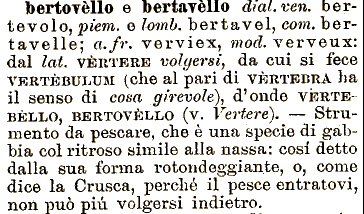 bertovèllo e bertavèllo dial. ven. ber-
tevolo, piem. e lomb. bertavel, com. ber-
tavelle; a. fr. verviex, mod. verveux:
dal lat. VÈRTERE volgersi, da cui si fece
VERTÈBULUM (che al pari di VÈRTEBRA ha
il senso di cosa girevole), d'onde VÈRTE-
BÈLLO, BERTOVÈLLO (v. Vertere). — Stru-
mento da pescare, che è una specie di gab-
bia col ritroso simile alla nassa: cosí detto
dalla sua forma rotondeggiante, o, come
dice la Crusca, perché il pesce entratovi,
non può piú volgersi indietro.